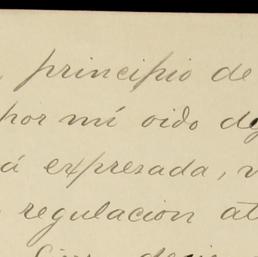 principio de
por mí oido de
á expresada, v
regulacion at